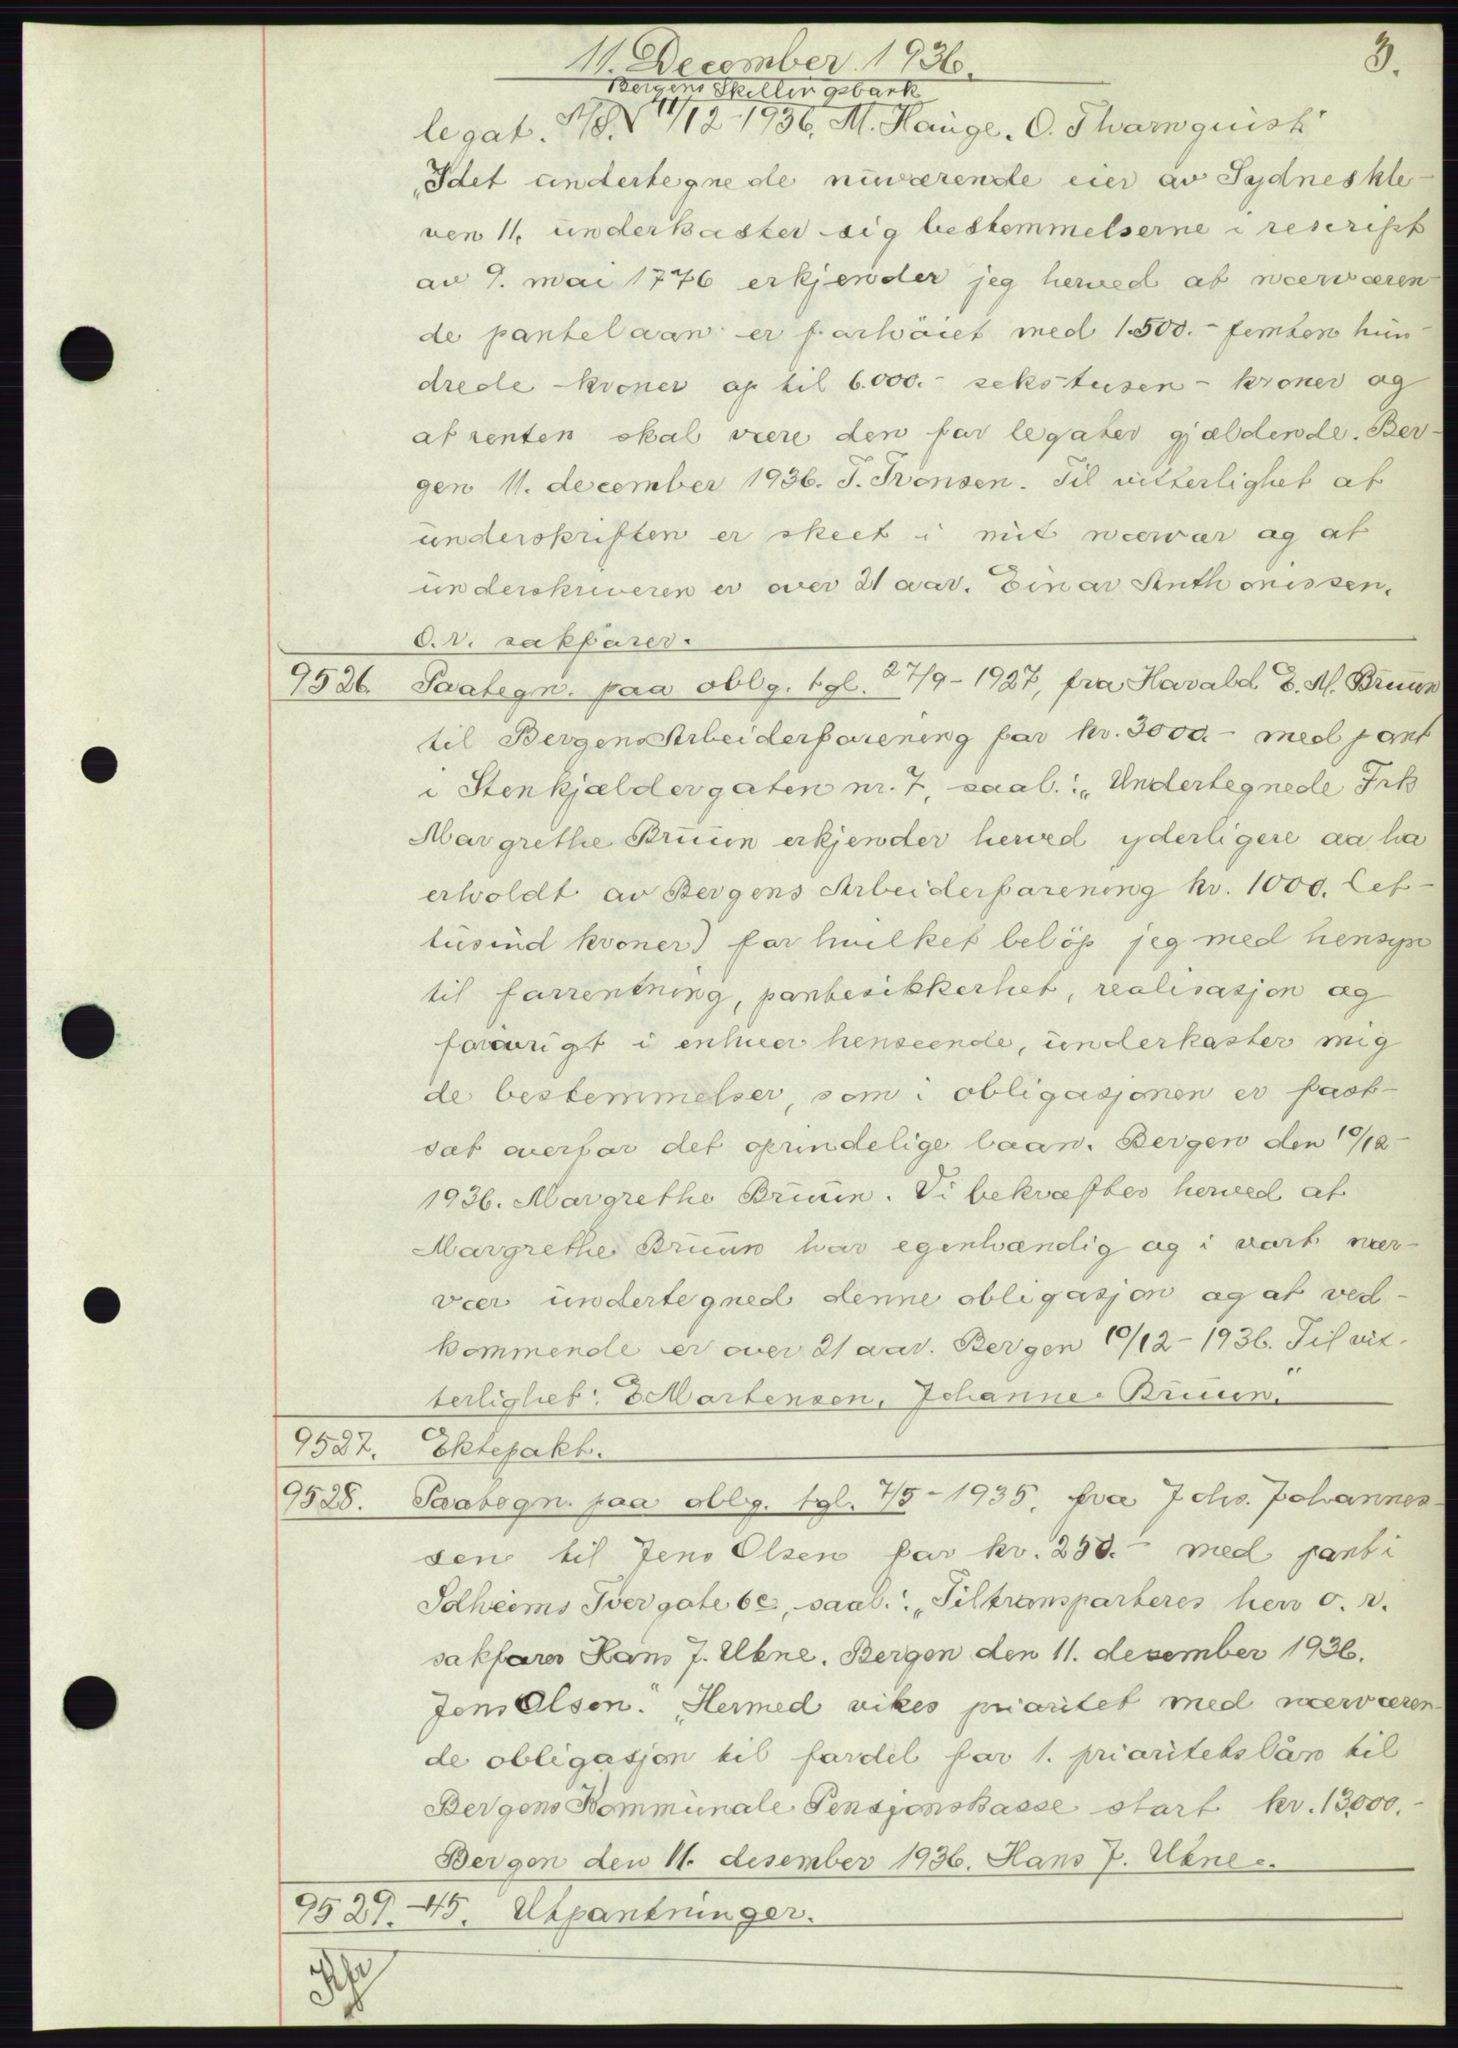 11. December 1936.
3.
Bergens Skillingsbank
legat. 11/12-1936. M. Hauge. O. Tharnquist"
"Idet undertegnede nuværende eier av Sydneskle-
ven 11, underkaster sig bestemmelserne i reskript
av 9. mai 1776 erkjender jeg herved at nærværen-
de pantelaan er forhöiet med 1.500.- femten hun-
drede - kroner op til 6.000.- sekstusen - kroner og
at renten skal være den for legater gjældende. Ber-
gen 11. december 1936. T. Tronsen. Til vitterlighet at
underskriften er skeet i mit nærvær og at
underskriveren er over 21 aar. Einar Anthonissen,
O.r. sakförer.
9526. Paategn. paa oblg. tgl. 27/9-1927, fra Harald E. M. Bruun
til Bergens Arbeiderforening for kr. 3000.- med pant
i Stenkjældergaten nr. 7, saal.: "Undertegnede Frk
Margrethe Bruun erkjender herved yderligere aa ha
erholdt av Bergens Arbeiderforening kr. 1000. (et-
tusind kroner) for hvilket belöp jeg med hensyn
til forrentning, pantesikkerhet, realisasjon og
forövrigt i enhver henseende, underkaster mig
de bestemmelser, som i obligasjonen er fast-
sat overfor det oprindelige laan. Bergen den 10/12-
1936. Margrethe Bruun. Vi bekræfter herved at
Margrethe Bruun har egenhændig og i vort nær-
vær undertegned denne obligasjon og at ved-
kommende er over 21 aar. Bergen 10/12-1936. Til vit-
terlighet: E Martensen, Johanne Bruun."
9527. Ektepakt.
9528. Paategn. paa oblg. tgl. 7/5-1935, fra Johs. Johannes-
sen til Jens Olsen for kr. 250.- med pant i
Solheims Tvergate 6c, saal.: "Tiltransporteres herr o. r.
sakförer Hans J. Utne. Bergen den 11. desember 1936.
Jens Olsen." "Hermed vikes prioritet med nærværen-
de obligasjon til fordel for 1. prioritetslån til
Bergens Kommunale Pensjonskasse stort kr. 13.000.-
Bergen den 11. desember 1936. Hans J. Utne".
9529.-45. Utpantninger.